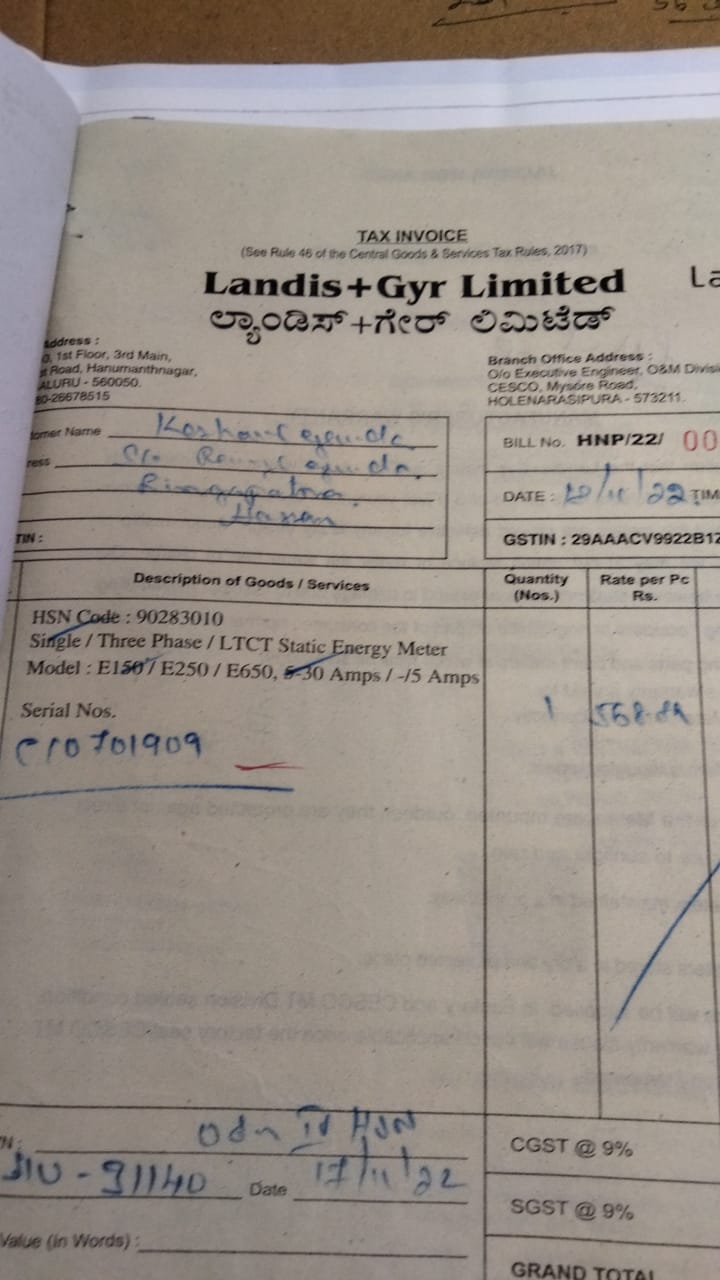 TAX INVOICE
(See Rule 46 of the Central Goods & Services Tax Rules, 2017)
Landis+Gyr Limited
La
ಲ್ಯಾಂಡಿಸ್+ಗೇರ್ ಲಿಮಿಟೆಡ್
ddress :
1st Floor, 3rd Main,
Road, Hanumanthnagar,
ALURU - 560050.
80-26678515
Branch Office Address :
O/o Executive Engineer, O&M Divisi
CESCO, Mysore Road,
HOLENARASIPURA - 573211.
omer Name
ress
Hassan
TIN :
BILL No. HNP/22/ 00
DATE : /11/22 TIM
GSTIN : 29AAACV9922B1Z
Description of Goods / Services
Quantity (Nos.)
Rate per Pc Rs.
HSN Code : 90283010
Single / Three Phase / LTCT Static Energy Meter
Model : E150 / E250 / E650, 5-30 Amps / -/5 Amps
Serial Nos.
1 568.
C10701909
N :
HSN
- 91140 Date 17/11/22
Value (in Words) :
CGST @ 9%
SGST @ 9%
GRAND TOTAL